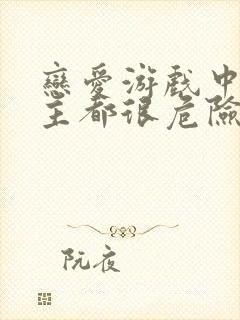 戀愛游戲中
主都很危險
阮夜